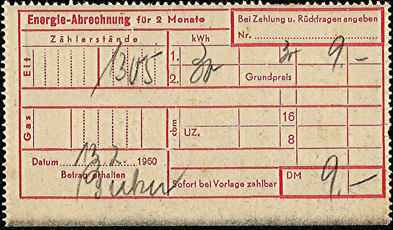 Energie-Abrechnung für 2 Monate
Bei Zahlung u. Rückfragen angeben
Nr.
Zählerstände kWh
Elt 1305 1. 9,-
2. Grundpreis
Gas cbm 16
UZ. 8
Datum 13.2. 1960
Betrag erhalten
Sofort bei Vorlage zahlbar DM 9,-